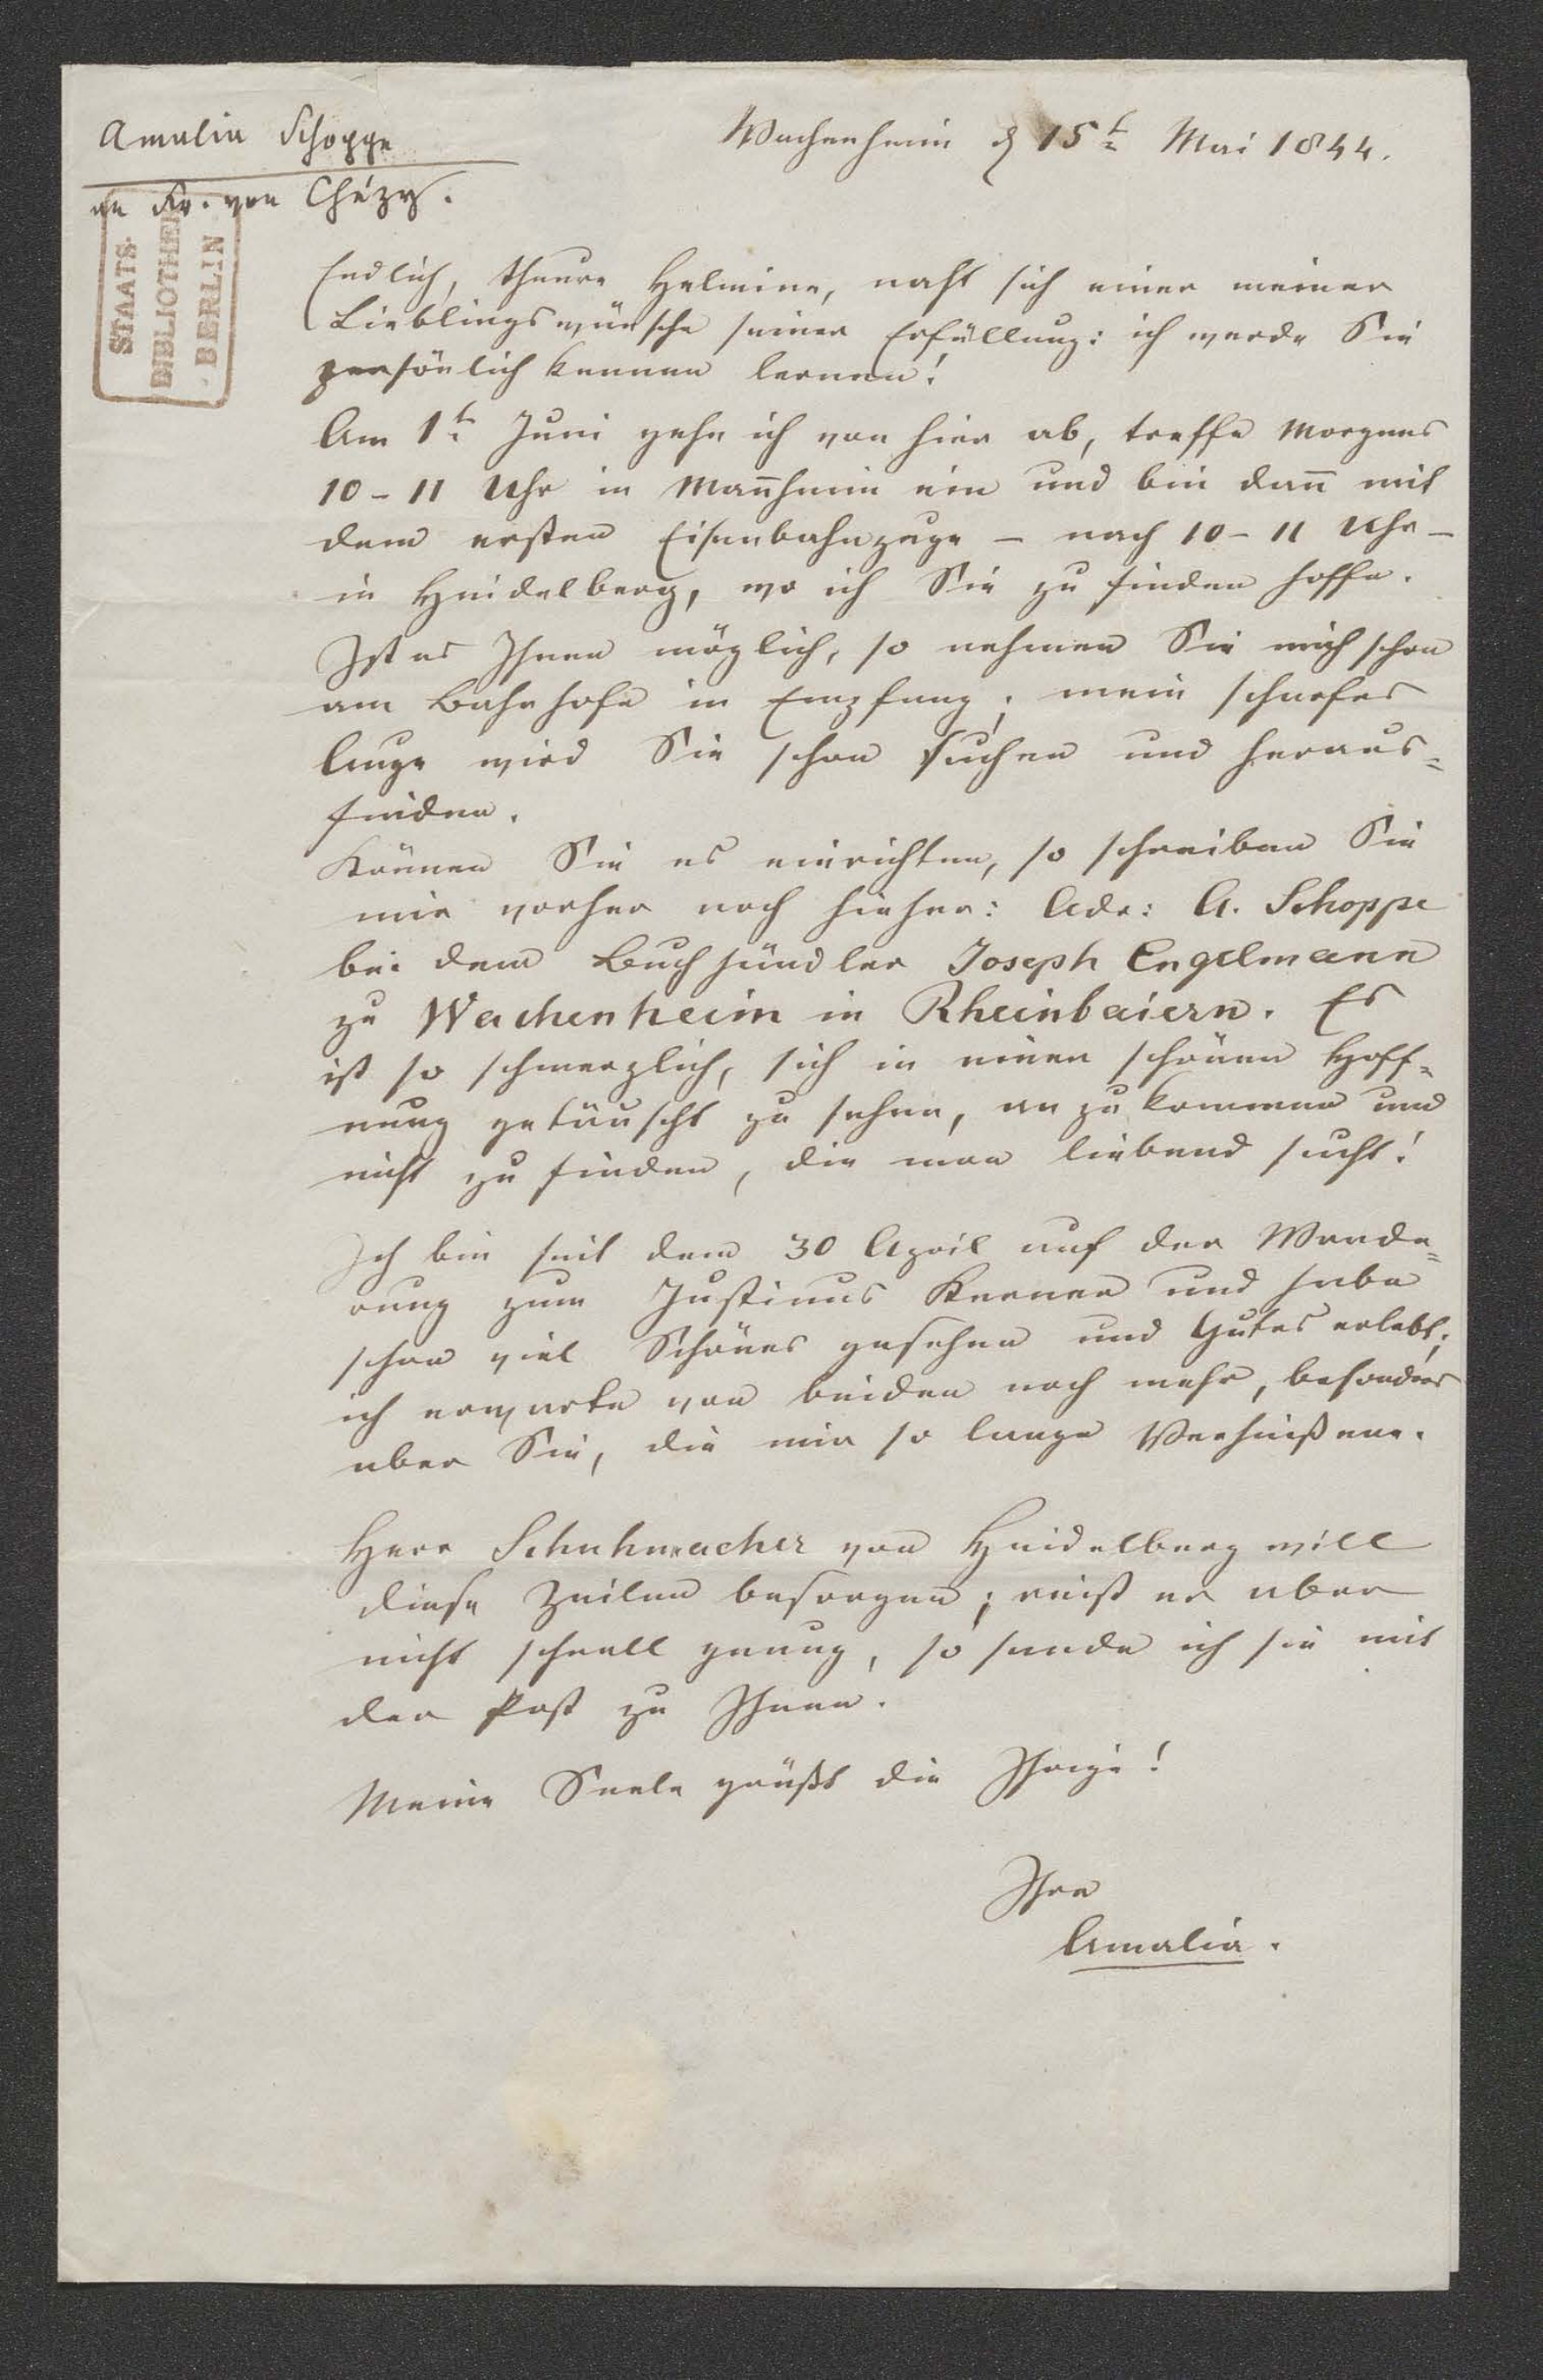 Amalia Schoppe
an Fr. von Chézy.
STAATS-
BIBLIOTHEK
BERLIN
Wachenheim d 15t Mai 1844.
Endlich, theure Helmine, naht sich einer meiner
Lieblingswünsche seiner Erfüllung: ich werde Sie
persönlich kennen lernen!
Am 1t Juni gehe ich von hier ab, treffe Morgens
10-11 Uhr in Man̄heim ein und bin dan̄ mit
dem ersten Eisenbahnzuge – nach 10-11 Uhr –
in Heidelberg, wo ich Sie zu finden hoffe.
Ist es Ihnen möglich, so nehmen Sie mich schon
am Bahnhofe in Empfang; mein scharfes
Auge wird Sie schon suchen und heraus=
finden.
Können Sie es einrichten, so schreiben Sie
mir vorher noch hieher: Adr: A. Schoppe
bei dem Buchhändler Joseph Engelmann
zu Wachenheim in Rheinbaiern. Es
ist so schmerzlich, sich in einer schönen Hoff=
nung getäuscht zu sehen, an zu kommen und
nicht zu finden, die man liebend sucht!
Ich bin seit dem 30 April auf der Wande=
rung zum Justinus Kerner und habe
schon viel Schönes gesehen und Gutes erlebt;
ich erwarte von beiden noch mehr, besonders
aber Sie, die mir so lange Verheißene.
Herr Schuhmacher von Heidelberg will
diese Zeilen besorgen; reist er aber
nicht schnell genug, so sende ich sie mit
der Post zu Ihnen.
Meine Seele grüßt die Ihrige!
Ihre
Amalia.